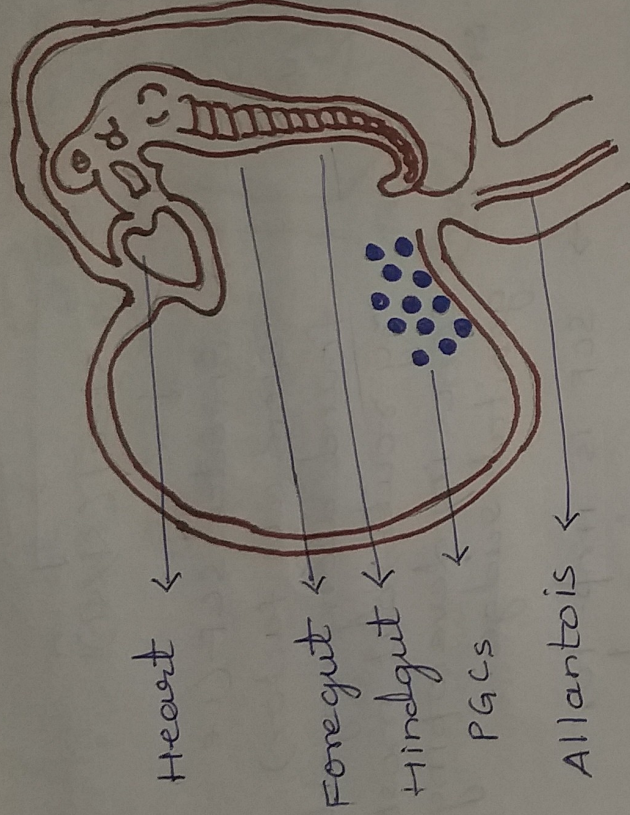 Heart
Foregut
Hindgut
PGCs
Allantois